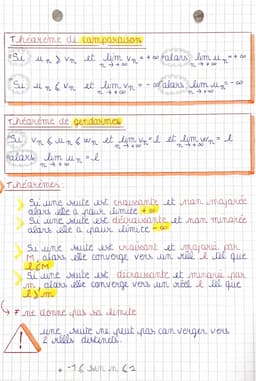 Théorème de comparaison
Si uₙ ≥ vₙ et lim vₙ = +∞ alors lim uₙ = +∞
n → +∞ n → +∞
Si uₙ ≤ vₙ et lim vₙ = -∞ alors lim uₙ = -∞
n → +∞ n → +∞
Théorème de gendarmes
Si vₙ ≤ uₙ ≤ wₙ et lim vₙ = l et lim wₙ = l
n → +∞ n → +∞
alors lim uₙ = l
n → +∞
Théorèmes :
Si une suite est croissante et non majorée
alors elle a pour limite +∞
Si une suite est décroissante et non minorée
alors elle a pour limite -∞
Si une suite est croissante et majorée par
M, alors elle converge vers un réel l tel que
l ≤ M
Si une suite est décroissante et minorée par
m, alors elle converge vers un réel l tel que
l ≥ m
↳ ≠ ne donne pas sa limite
! une suite ne peut pas converger vers
2 réels distincts.
-1 ≤ sin n ≤ 1